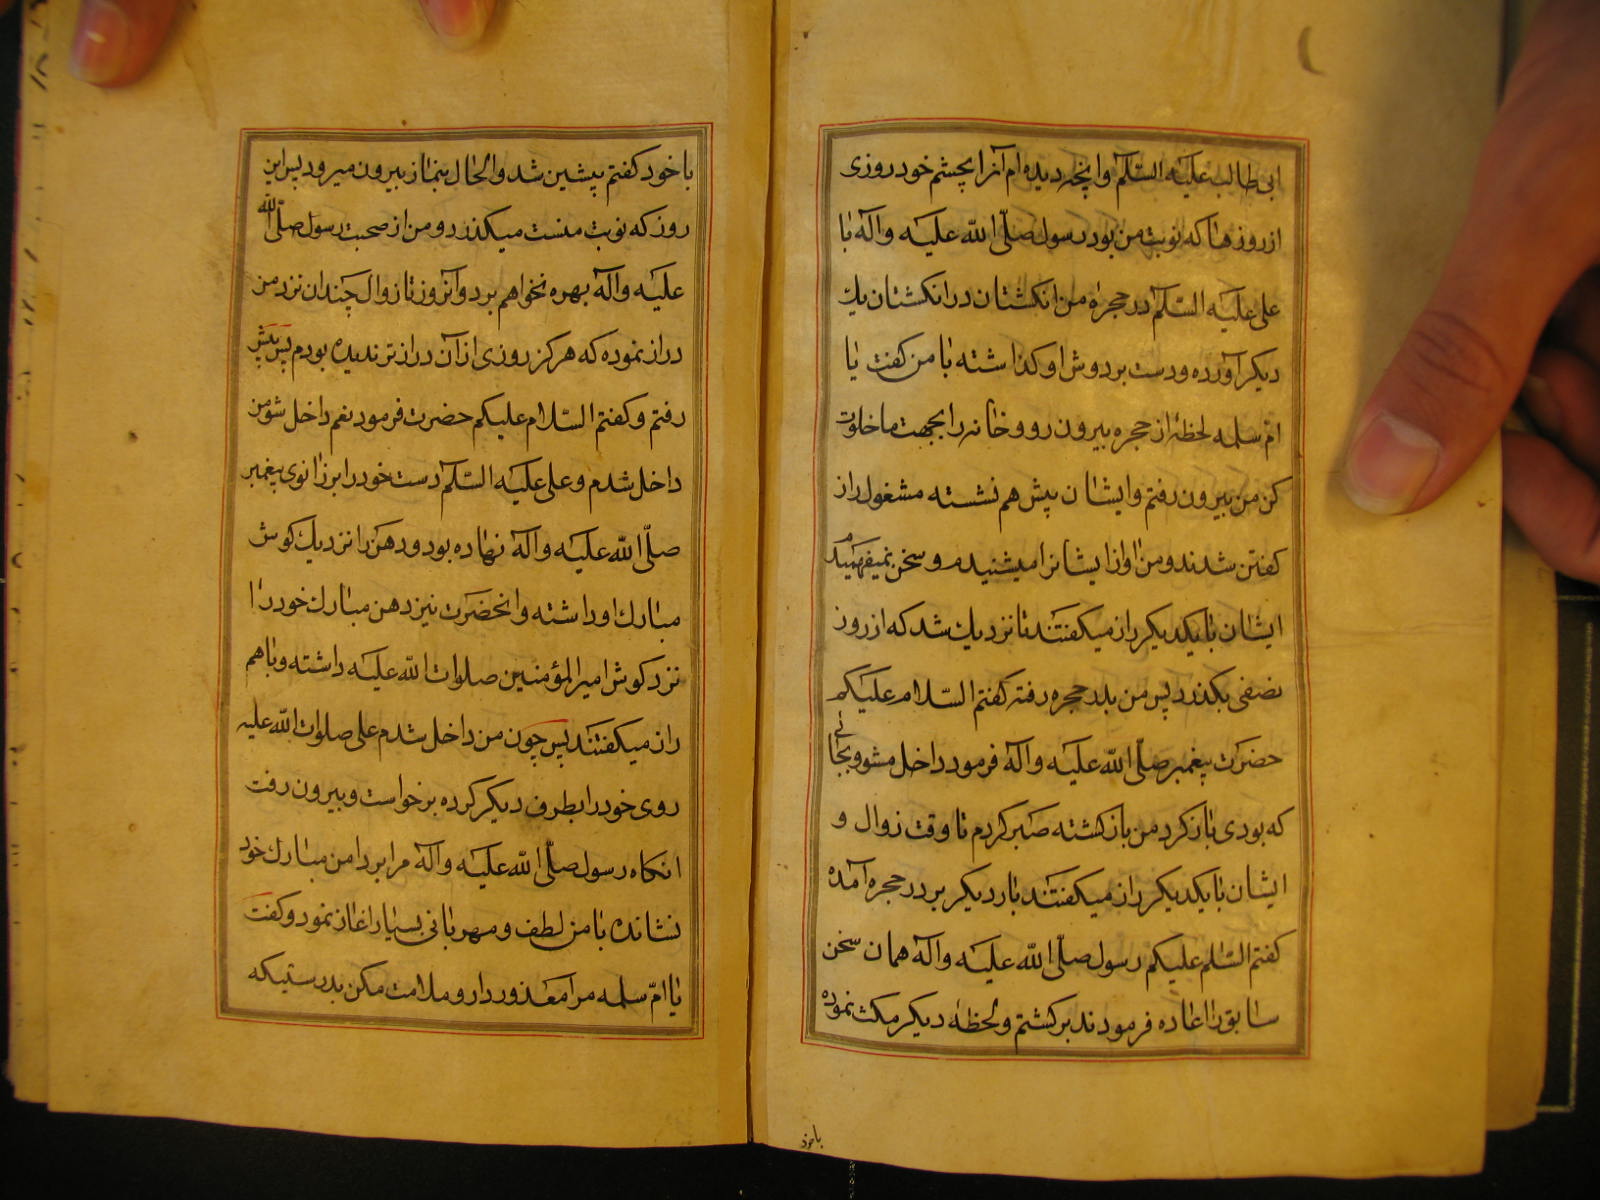 ابی طالب علیه السّلم وانچه دیده ام آنرا بچشم خود روزی
از روزها که نوبت من بود رسول صلّی الله علیه وآله با
علی علیه السّلم در حجرهٔ من انکشتان در انکشتان یك
دیکر آورده ودست بر دوش او کذاشته با من کفت یا
امّ سلمه لحظهٔ از حجره بیرون رو وخانه را بجهت ما خلوت
کن من بیرون رفتم وایشان پیش هم نشسته مشغول راز
کفتن شدند ومن اواز ایشانرا میشنیدم و سخن نمیفهمیدم
ایشان با یکدیکر راز میکفتند تا نزدیك شد که از روز
نصفی بکذرد پس من بدر حجره رفته کفتم السّلام علیکم
حضرت پیغمبر صلّی الله علیه وآله فرمود داخل مشو وبجائی
که بودی باز کرد من بازکشته صبر کردم تا وقت زوال و
ایشان با یکدیکر راز میکفتند بار دیکر بر در حجره آمده
کفتم السّلم علیکم رسول صلّی الله علیه وآله همان سخن
سابق را اعاده فرمودند برکشتم ولحظهٔ دیکر مکث نموده
با خود
با خود کفتم پیشین شد والحال بنماز بیرون میرود پس این
روز که نوبت منست میکذرد ومن از صحبت رسول صلّی الله
علیه وآله بهره نخواهم برد وآنروز تا زوال چندان نزد من
دراز نموده که هرکز روزی از آن درازتر ندیده بودم پس پیش
رفتم وکفتم السّلام علیکم حضرت فرمود نعم داخل شو من
داخل شدم وعلی علیه السّلم دست خود را بر زانوی پیغمبر
صلّی الله علیه وآله نهاده بود ودهن را نزدیك کوش
مبارك او داشته وانحضرت نیز دهن مبارك خود را
نزد کوش امیر المؤمنین صلوات الله علیه داشته وبا هم
راز میکفتند پس چون من داخل شدم علی صلوات الله علیه
روی خود را بطرف دیکر کرده برخواست وبیرون رفت
انکاه رسول صلّی الله علیه وآله مرا بر دامن مبارك خود
نشانده با من لطف ومهربانی بسیار اغاز نمود وکفت
یا امّ سلمه مرا معذور دار وملامت مکن بدرستیکه